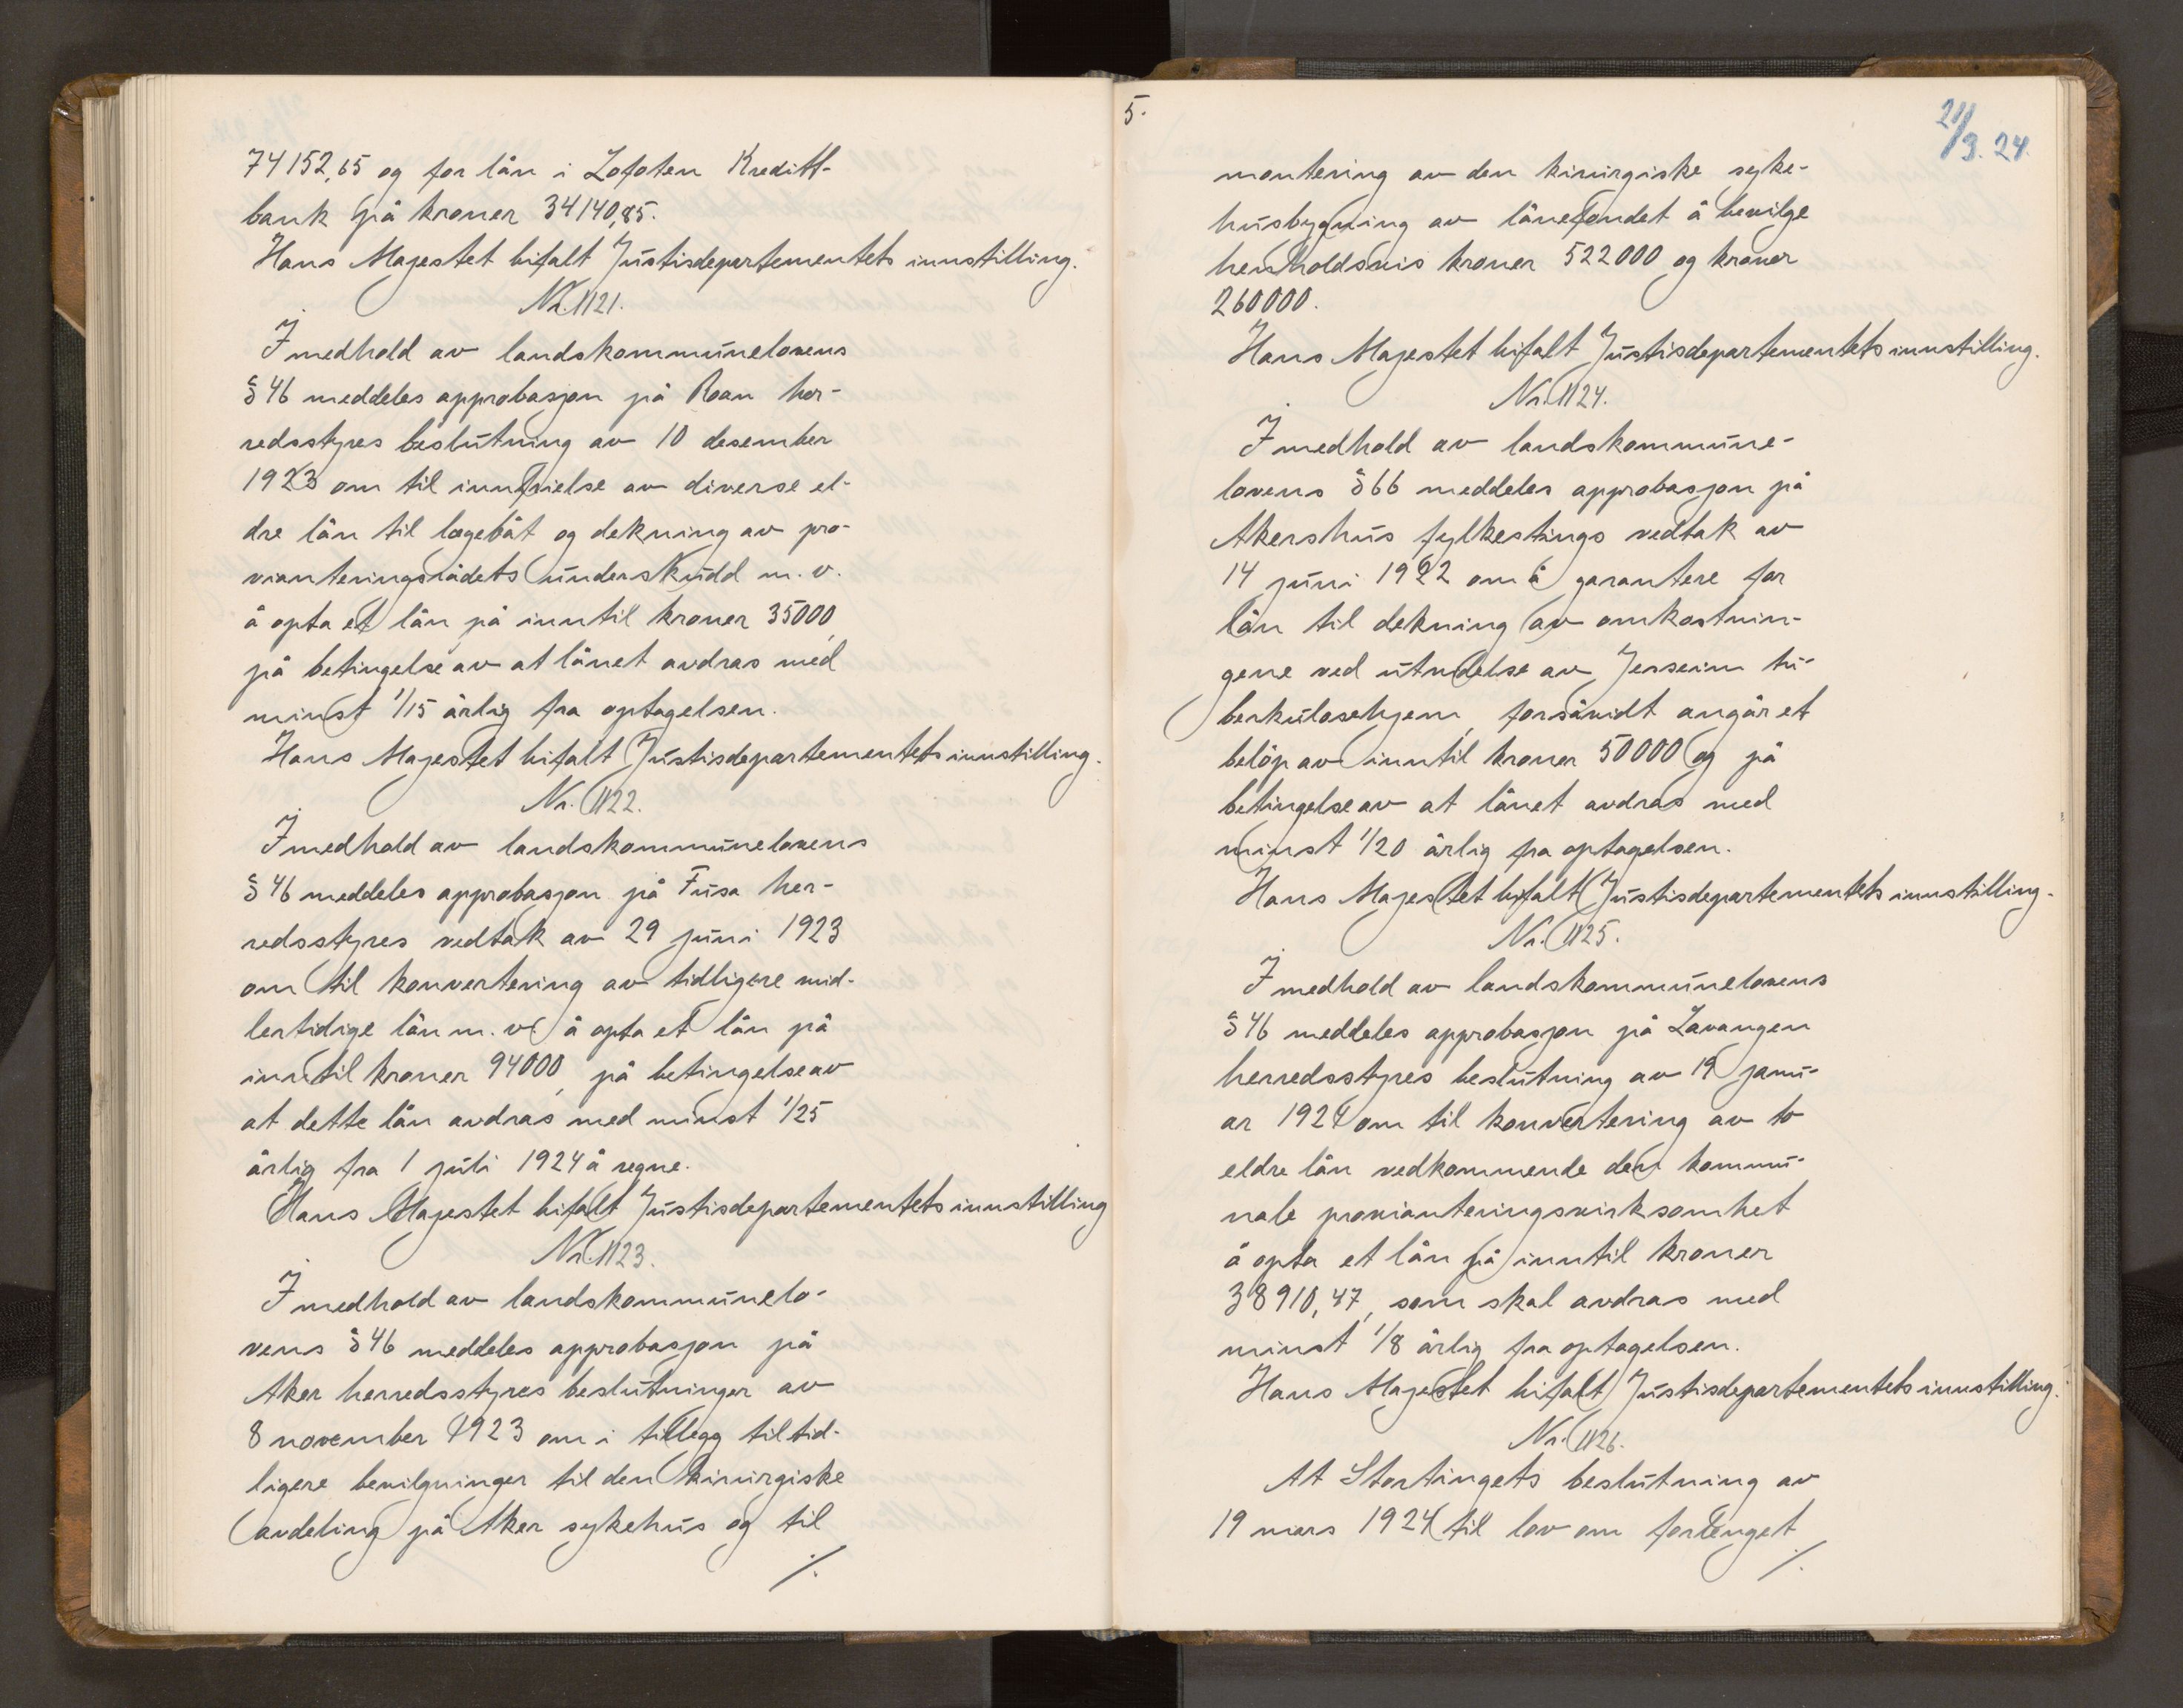 74152,65 og for lån i Lofoten Kreditt-
bank på kroner 34140,85.
Hans Majestet bifalt Justisdepartementets innstilling.
Nr. 1121.
I medhold av landskommunelovens
§ 46 meddeles approbasjon på Roan her-
redsstyres beslutning av 10 desember
1923 om til innfrielse av diverse el-
dre lån til lægebåt og dekning av pro-
vianteringsrådets underskudd m.v.
å opta et lån på inntil kroner 35000,
på betingelse av at lånet avdras med
minst 1/15 årlig fra optagelsen.
Hans Majestet bifalt Justisdepartementets innstilling.
Nr. 1122.
I medhold av landskommunelovens
§ 46 meddeles approbasjon på Fusa her-
redsstyres vedtak av 29 juni 1923
om til konvertering av tidligere mid-
lertidige lån m.v. å opta et lån på
inntil kroner 94000, på betingelse av
at dette lån avdras med minst 1/25
årlig fra 1 juli 1924 å regne.
Hans Majestet bifalt Justisdepartementets innstilling
Nr. 1123.
I medhold av landskommunelo-
vens § 46 meddeles approbasjon på
Aker herredsstyres beslutninger av
8 november 1923 om i tillegg til tid-
ligere bevilgninger til den kirurgiske
avdeling på Aker sykehus og til
./.
5.
21/3.24.
montering av den kirurgiske syke-
husbygning av lånefondet å bevilge
henholdsvis kroner 522000 og kroner
260000.
Hans Majestet bifalt Justisdepartementets innstilling.
Nr. 1124.
I medhold av landskommune-
lovens § 66 meddeles approbasjon på
Akershus fylkestings vedtak av
14 juni 1922 om å garantere for
lån til dekning av omkostnin-
gene ved utvidelse av Jesseim tu-
berkulosehjem, forsåvidt angår et
beløp av inntil kroner 50000 og på
betingelse av at lånet avdras med
minst 1/20 årlig fra optagelsen.
Hans Majestet bifalt Justisdepartementets innstilling.
Nr. 1125.
I medhold av landskommunelovens
§ 46 meddeles approbasjon på Lavangen
herredsstyres beslutning av 19 janu-
ar 1924 om til konvertering av to
eldre lån vedkommende den kommu-
nale provianteringsvirksomhet
å opta et lån på inntil kroner
38910,47, som skal avdras med
minst 1/8 årlig fra optagelsen.
Hans Majestet bifalt Justisdepartementets innstilling.
Nr. 1126.
At Stortingets beslutning av
19 mars 1924 til lov om forlenget
./.